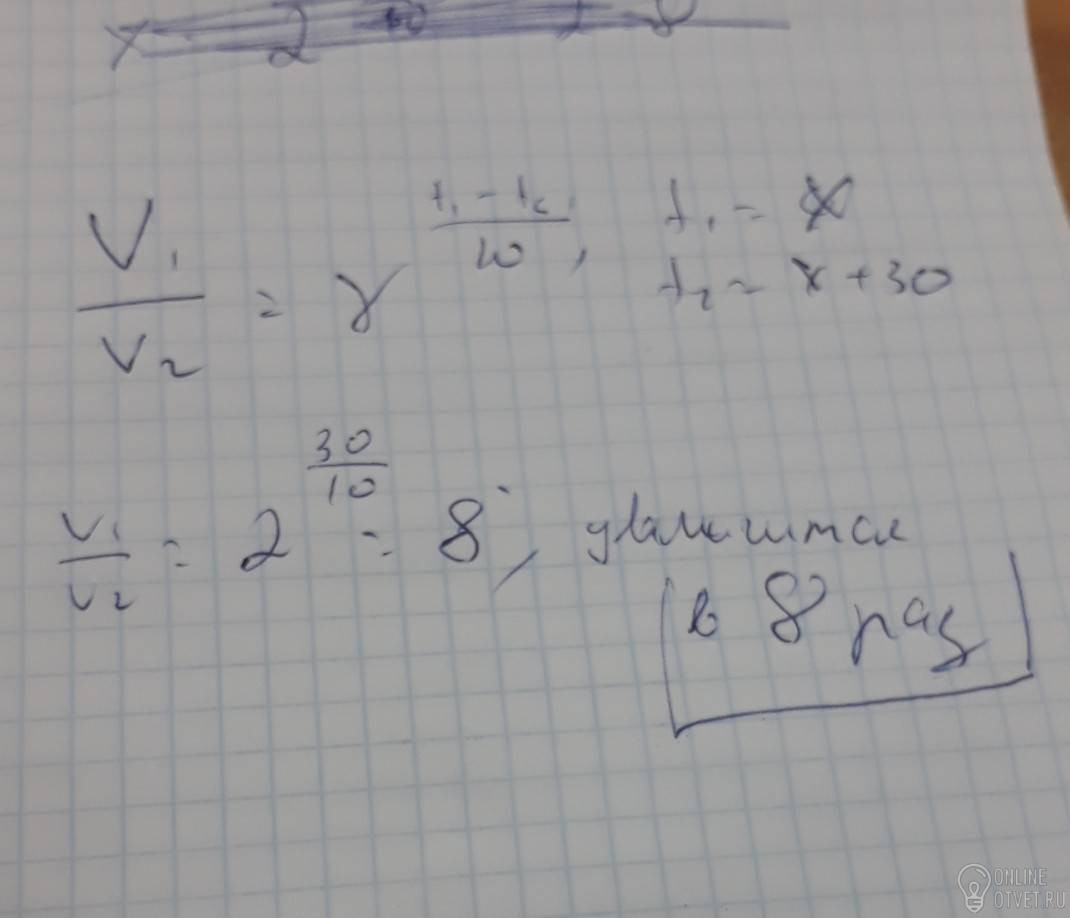 V₁/V₂ = γ^((t₁ - t₂)/10), t₁ = x
t₂ = x + 30
V₁/V₂ = 2^(30/10) = 8, увеличится
в 8 раз
ONLINE
OTVET.RU